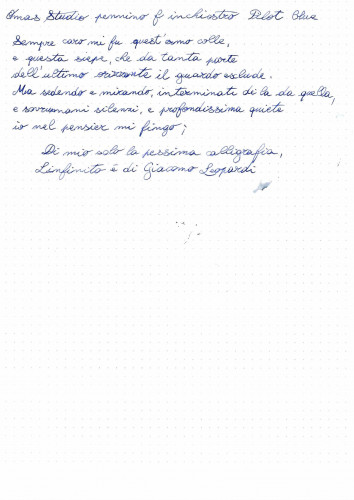 Omas Studio pennino f inchiostro Pilot Blue
Sempre caro mi fu quest'ermo colle,
e questa siepe, che da tanta parte
dell'ultimo orizzonte il guardo esclude.
Ma sedendo e mirando, interminati di la da quella,
e sovrumani silenzi, e profondissima quiete
io nel pensier mi fingo;
Di mio solo la pessima calligrafia,
L'infinito è di Giacomo Leopardi